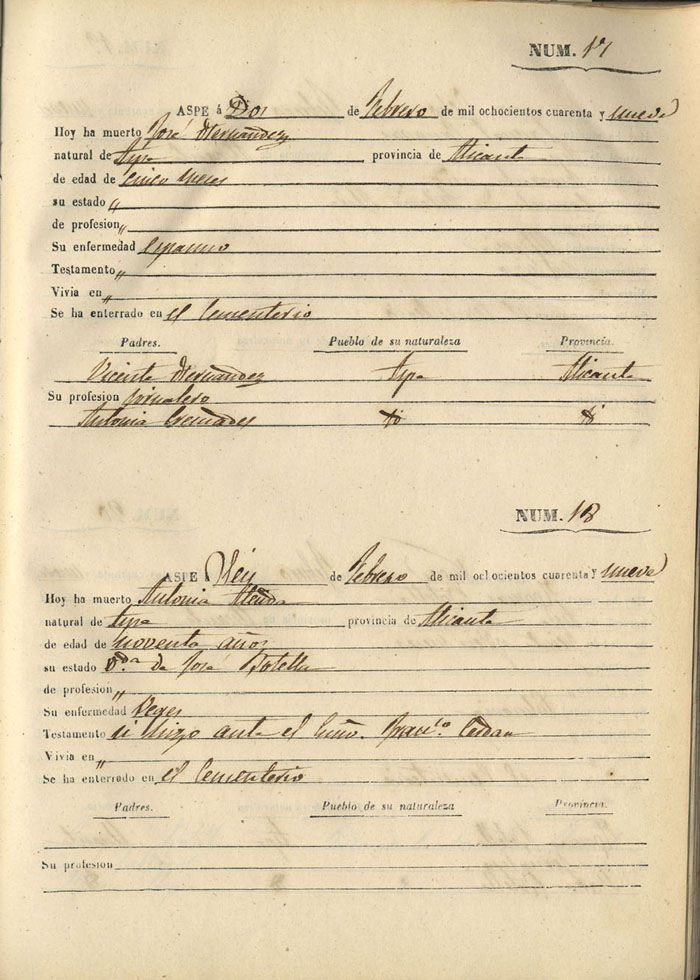 NUM. 17
ASPE á Dos de Febrero de mil ochocientos cuarenta y nueve
Hoy ha muerto José Hernandez
natural de Aspe provincia de Alicante
de edad de Cinco meses
su estado „
de profesion „
Su enfermedad Espasmo
Testamento „
Vivia en „
Se ha enterrado en el Cementerio
Padres. Pueblo de su naturaleza Provincia.
Vicente Hernandez Aspe Alicante
Su profesion Jornalero
Antonia Cremades
NUM. 18
ASPE á Seis de Febrero de mil ochocientos cuarenta y nueve
Hoy ha muerto Antonia
natural de Aspe provincia de Alicante
de edad de noventa años
su estado V.da de José Botella
de profesion „
Su enfermedad Vejez
Testamento si hizo ante el
Vivia en „
Se ha enterrado en el Cementerio
Padres. Pueblo de su naturaleza Provincia.
Su profesion